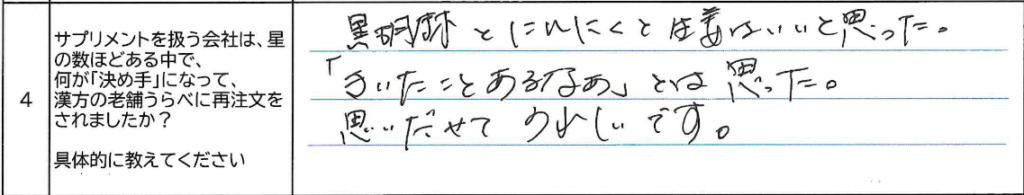 4
サプリメントを扱う会社は、星
の数ほどある中で、
何が「決め手」になって、
漢方の老舗うらべに再注文を
されましたか？
具体的に教えてください
黒胡麻とにんにくと生姜はいいと思った。
「きいたことあるなあ」とは思った。
思いだせてうれしいです。